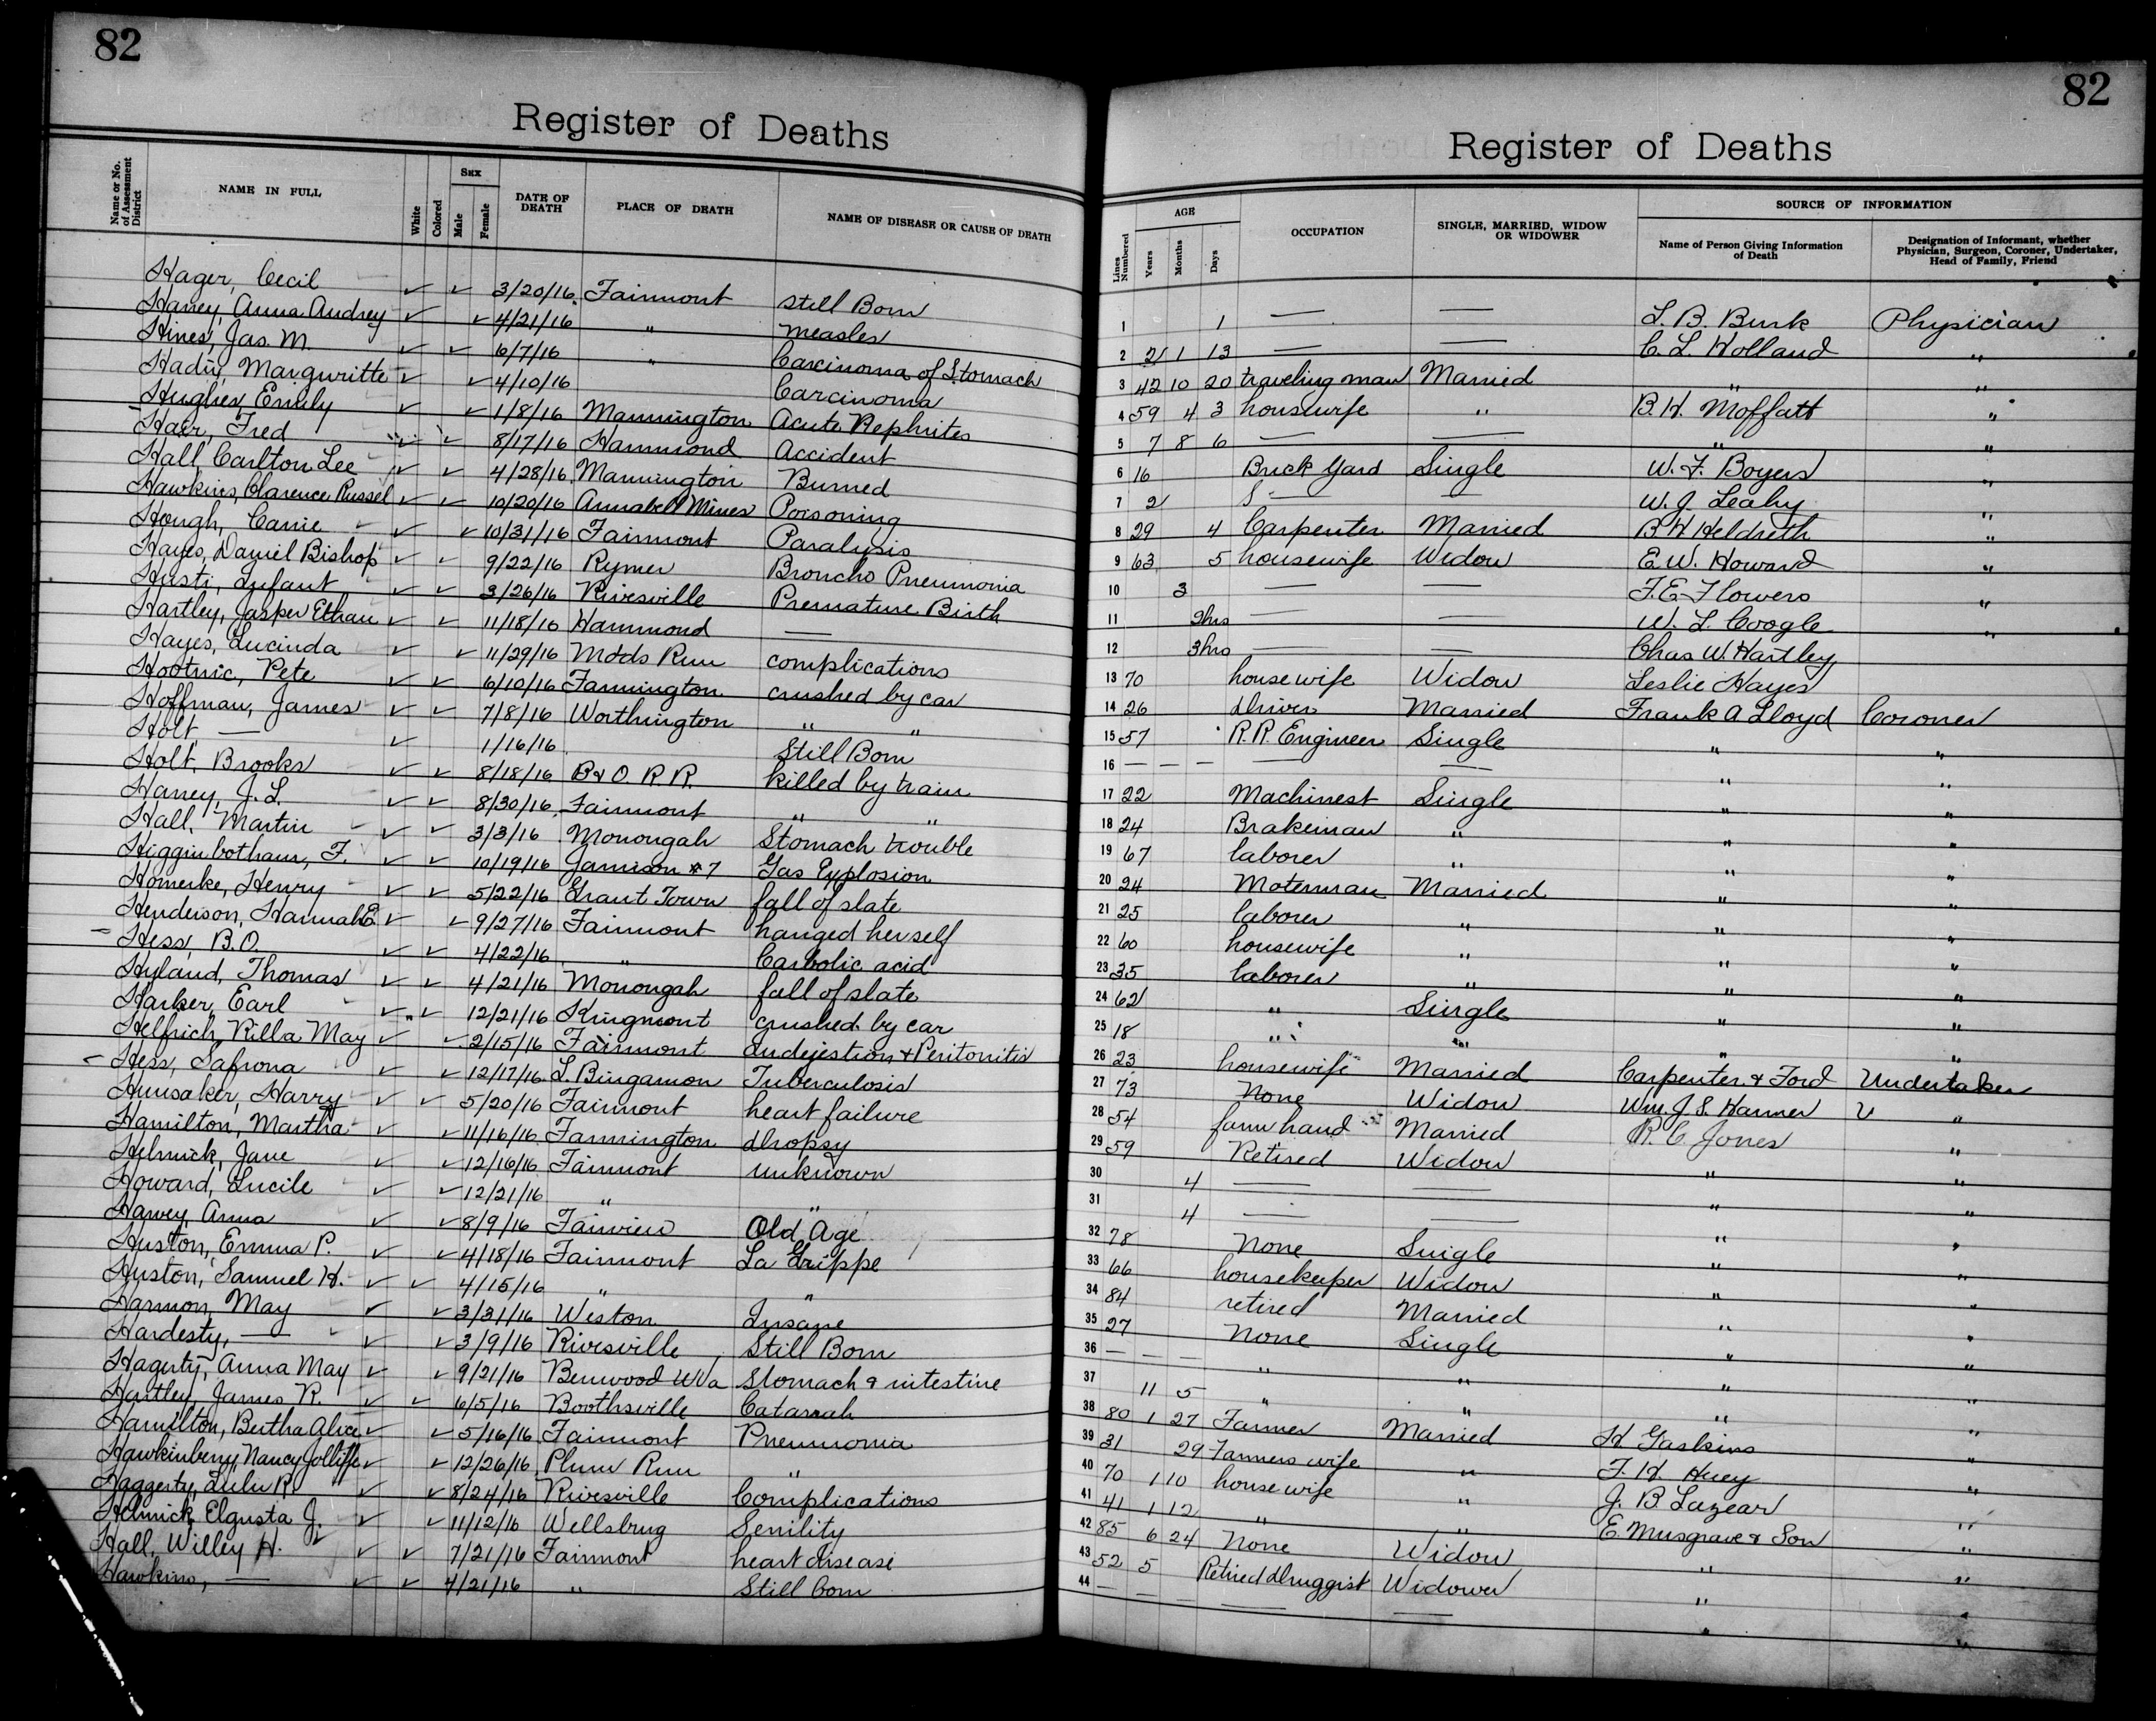 82
Register of Deaths
Name or No. of Assessment District
NAME IN FULL
White
Colored
SEX
Male
Female
DATE OF DEATH
PLACE OF DEATH
NAME OF DISEASE OR CAUSE OF DEATH
Hager, Cecil ✓ ✓ 3/20/16 Fairmont Still Born
Haney, Anna Audrey ✓ ✓ 4/21/16 " measles
Hines, Jas. M. ✓ ✓ 6/7/16 " Carcinoma of Stomach
Marguritte ✓ ✓ 4/10/16 Carcinoma
Hughes, Emily ✓ ✓ 1/8/16 Mannington Acute Nephrites
Fred ✓ ✓ 8/17/16 Hammond Accident
Hall, Carlton Lee ✓ ✓ 4/28/16 Mannington Burned
Hawkins, Clarence Russel ✓ ✓ 10/20/16 Annabell Mines Poisoning
Hough, Carrie ✓ ✓ 10/31/16 Fairmont Paralysis
Hayes, Daniel Bishop ✓ ✓ 9/22/16 Rymer Broncho Pneumonia
Infant ✓ ✓ 3/26/16 Rivesville Premature Birth
Hartley, Jasper Ethan ✓ ✓ 11/18/16 Hammond —
Hayes, Lucinda ✓ ✓ 11/29/16 Mods Run complications
Hootnic, Pete ✓ ✓ 6/10/16 Farmington crushed by car
Hoffman, James ✓ ✓ 7/8/16 Worthington " "
Holt, — ✓ 1/16/16 Still Born
Holt, Brooks ✓ ✓ 8/18/16 B & O. R.R. killed by train
Haney, J. L. ✓ ✓ 8/30/16 Fairmont " "
Hall, Martin ✓ ✓ 3/3/16 Monongah Stomach trouble
Higginbotham, F. ✓ ✓ 10/19/16 Jamison #7 Gas Explosion
Homerke, Henry ✓ ✓ 5/22/16 Grant Town fall of slate
Henderson, Hannah E ✓ ✓ 9/27/16 Fairmont hanged herself
Hess, B.O. ✓ ✓ 4/22/16 " Carbolic acid
Hyland, Thomas ✓ ✓ 4/21/16 Monongah fall of slate
Harker, Earl ✓ ✓ 12/21/16 Kingmont crushed by car
Helfrich, Rilla May ✓ ✓ 2/15/16 Fairmont Indejestion & Peritonitis
Hess, Safrona ✓ ✓ 12/17/16 L. Bingamon Tuberculosis
Hunsaker, Harry ✓ ✓ 5/20/16 Fairmont heart failure
Hamilton, Martha ✓ ✓ 11/16/16 Farmington dropsy
Helmick, Jane ✓ ✓ 12/16/16 Fairmont unknown
Howard, Lucile ✓ ✓ 12/21/16 " "
Anna ✓ ✓ 8/9/16 Fairview Old Age
Huston, Emma P. ✓ ✓ 4/18/16 Fairmont La Grippe
Huston, Samuel H. ✓ ✓ 4/15/16 " "
Harmon, May ✓ ✓ 3/31/16 Weston Insane
Hardesty, — ✓ ✓ 3/9/16 Rivesville Still Born
Hagerty, Anna May ✓ ✓ 9/21/16 Benwood WVa Stomach & intestine
Hartley, James R. ✓ ✓ 6/5/16 Boothsville Catarrah
Hamilton, Bertha Alice ✓ ✓ 5/16/16 Fairmont Pneumonia
Hawkinberry, Nancy Jolliffe ✓ ✓ 12/26/16 Plum Run "
Haggerty, Lulu R. ✓ ✓ 8/24/16 Rivesville Complications
Helmick, Elgusta J. ✓ ✓ 11/12/16 Wellsbrug Senility
Hall, Willey H. ✓ ✓ 7/21/16 Fairmont heart disease
Hawkins, — ✓ ✓ 4/21/16 " Still born
82
Register of Deaths
Lines Numbered
AGE
Years
Months
Days
OCCUPATION
SINGLE, MARRIED, WIDOW OR WIDOWER
SOURCE OF INFORMATION
Name of Person Giving Information of Death
Designation of Informant, whether Physician, Surgeon, Coroner, Undertaker, Head of Family, Friend
1 1 — — L. B. Burk Physician
2 21 1 13 — — C. L. Holland "
3 42 10 20 traveling man Married " "
4 59 4 3 housewife " B. H. Moffatt "
5 7 8 6 — — " "
6 16 Brick Yard Single W. F. Boyers "
7 2 — — W. J. Leahy "
8 29 4 Carpenter Married B H Heldreth "
9 63 5 housewife Widow E. W. Howard "
10 3 — — F. E. Flowers "
11 3hrs — — W. L. Coogle "
12 3hrs — — Chas W. Hartley
13 70 housewife Widow Leslie Hayes
14 26 driver Married Frank A Lloyd Coroner
15 57 R.R. Engineer Single " "
16 — — — — — " "
17 22 Machinest Single " "
18 24 Brakeman " " "
19 67 laborer " " "
20 24 Moterman Married " "
21 25 laborer " " "
22 60 housewife " " "
23 35 laborer " " "
24 62 " Single " "
25 18 " " " "
26 23 housewife Married Carpenter & Ford Undertaker
27 73 None Widow Wm. J. S. Harmer "
28 54 farm hand Married R. C. Jones "
29 59 Retired Widow " "
30 4 — — " "
31 4 — — " "
32 78 None Single " "
33 66 housekeeper Widow " "
34 84 retired Married " "
35 27 None Single " "
36 — — — " " " "
37 11 5 " " " "
38 80 1 27 Farmer Married H Gaskins "
39 31 29 Farmers wife " F. H. Huey "
40 70 1 10 house wife " J. B. Lazear "
41 41 1 12 " " E. Musgrave & Son "
42 85 6 24 None Widow " "
43 52 5 Retired druggist Widower " "
44 — — — — — " "